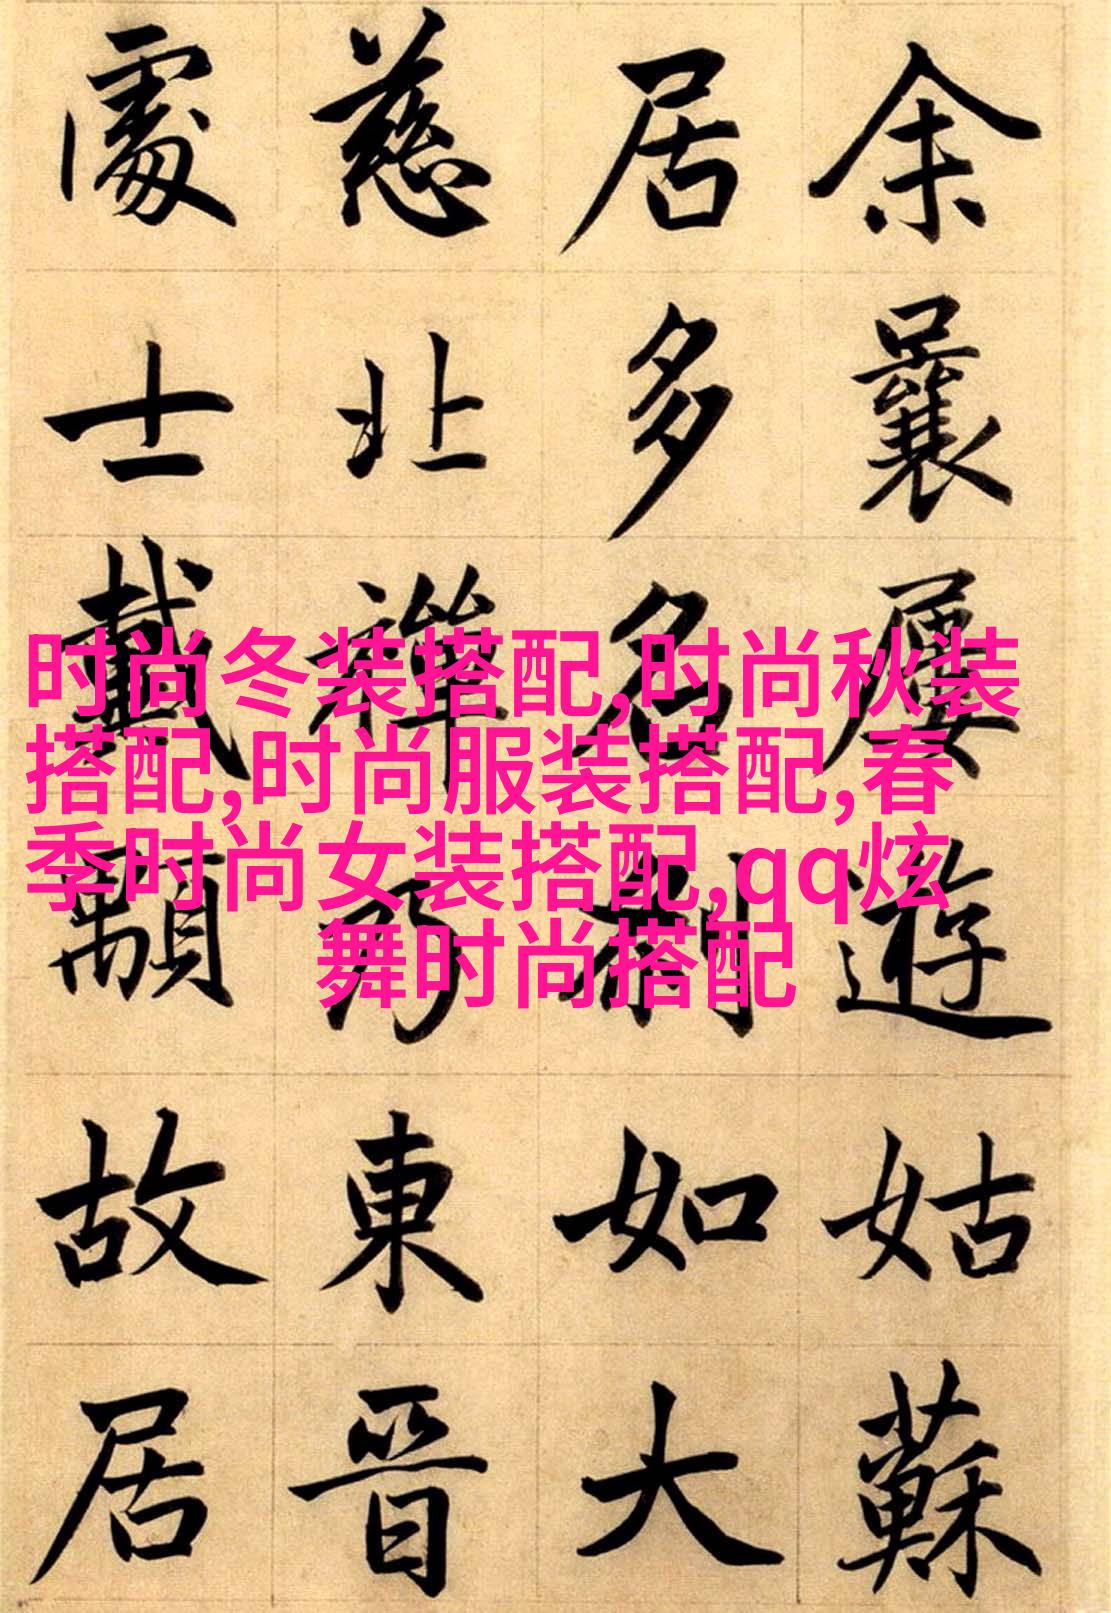 余曩屢遊姑蘇
居多名刹如大
慈北禪乃東晋
處士戴顒故居
时尚冬装搭配,时尚秋装
搭配,时尚服装搭配,春
季时尚女装搭配,qq炫
舞时尚搭配